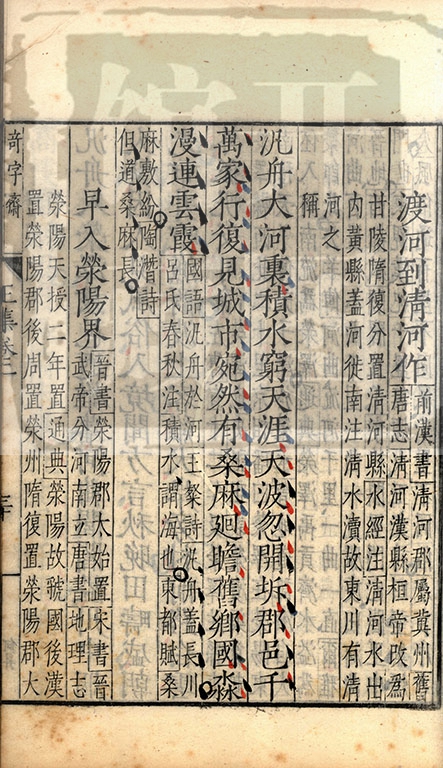 渡河到清河作
前漢書清河郡屬冀州舊
唐志清河漢縣桓帝改爲
甘陵隋復分置清河縣水經注清河水出
內黃縣蓋河徙南注清水瀆故東川有清
河之
稱
汎舟大河裏積水窮天涯天波忽開坼郡邑千
萬家行復見城市宛然有桑麻廻瞻舊鄉國淼
漫連雲霞
國語汎舟於河王粲詩汎舟蓋長川
呂氏春秋注積水謂海也東都賦桑
麻敷紛陶潛詩
但道桑麻長
早入滎陽界
晉書滎陽郡太始置宋書晉
武帝分河南立唐書地理志
滎陽天授二年置通典滎陽故虢國後漢
置滎陽郡後周置滎州隋復置滎陽郡大
奇字齋